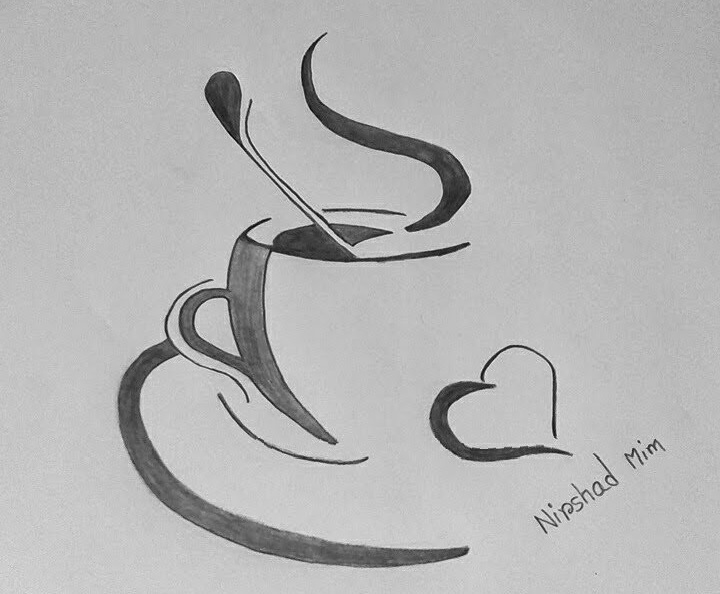 Nirshad Mim